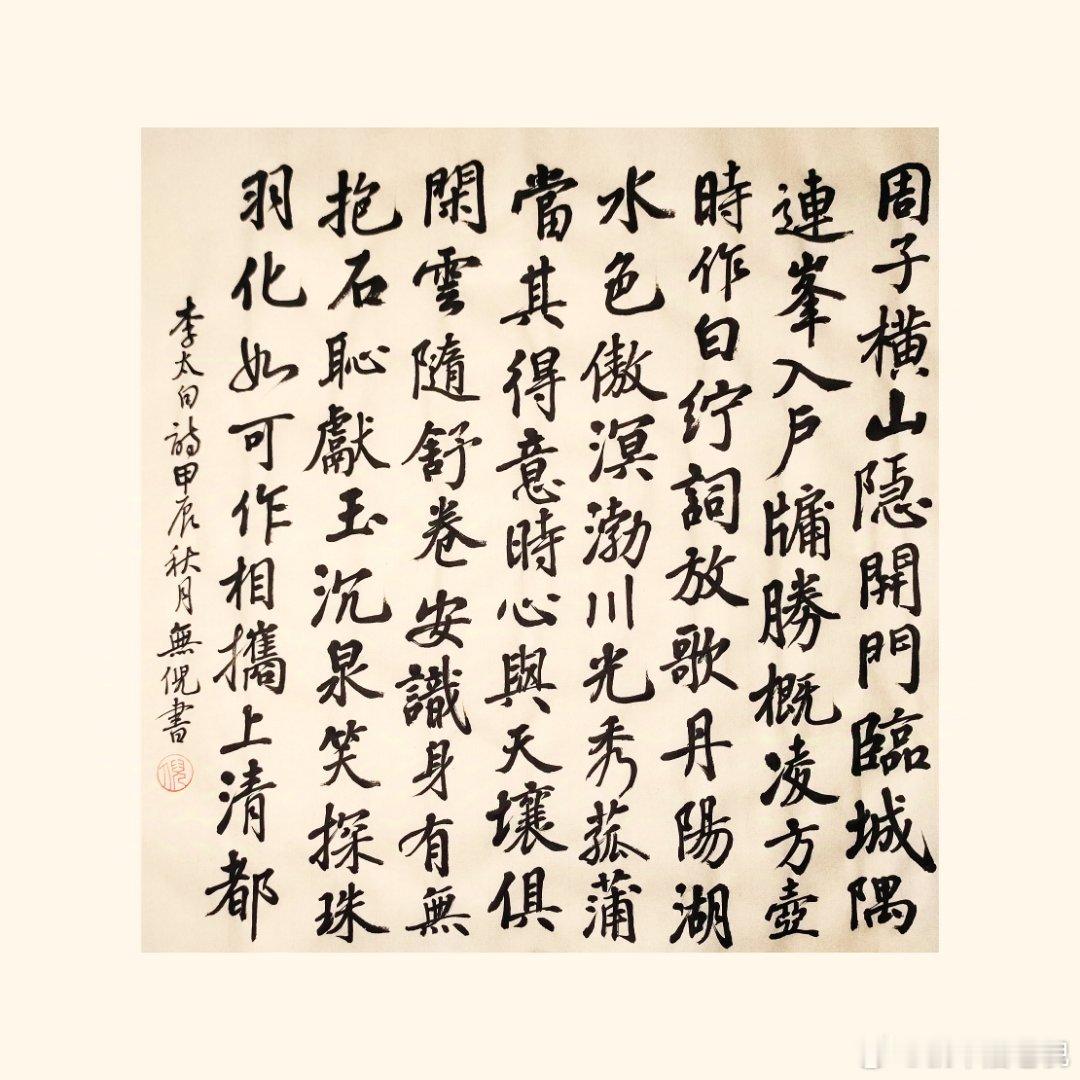 周子橫山隱開門臨城隅
連峯入户牖勝概凌方壺
時作白紵詞放歌丹陽湖
水色傲溟渤川光秀菰蒲
當其得意時心與天壤俱
閑雲隨舒卷安識身有無
抱石恥獻玉沉泉笑探珠
羽化如可作相攜上清都
李太白詩甲辰秋月無倪書
倪